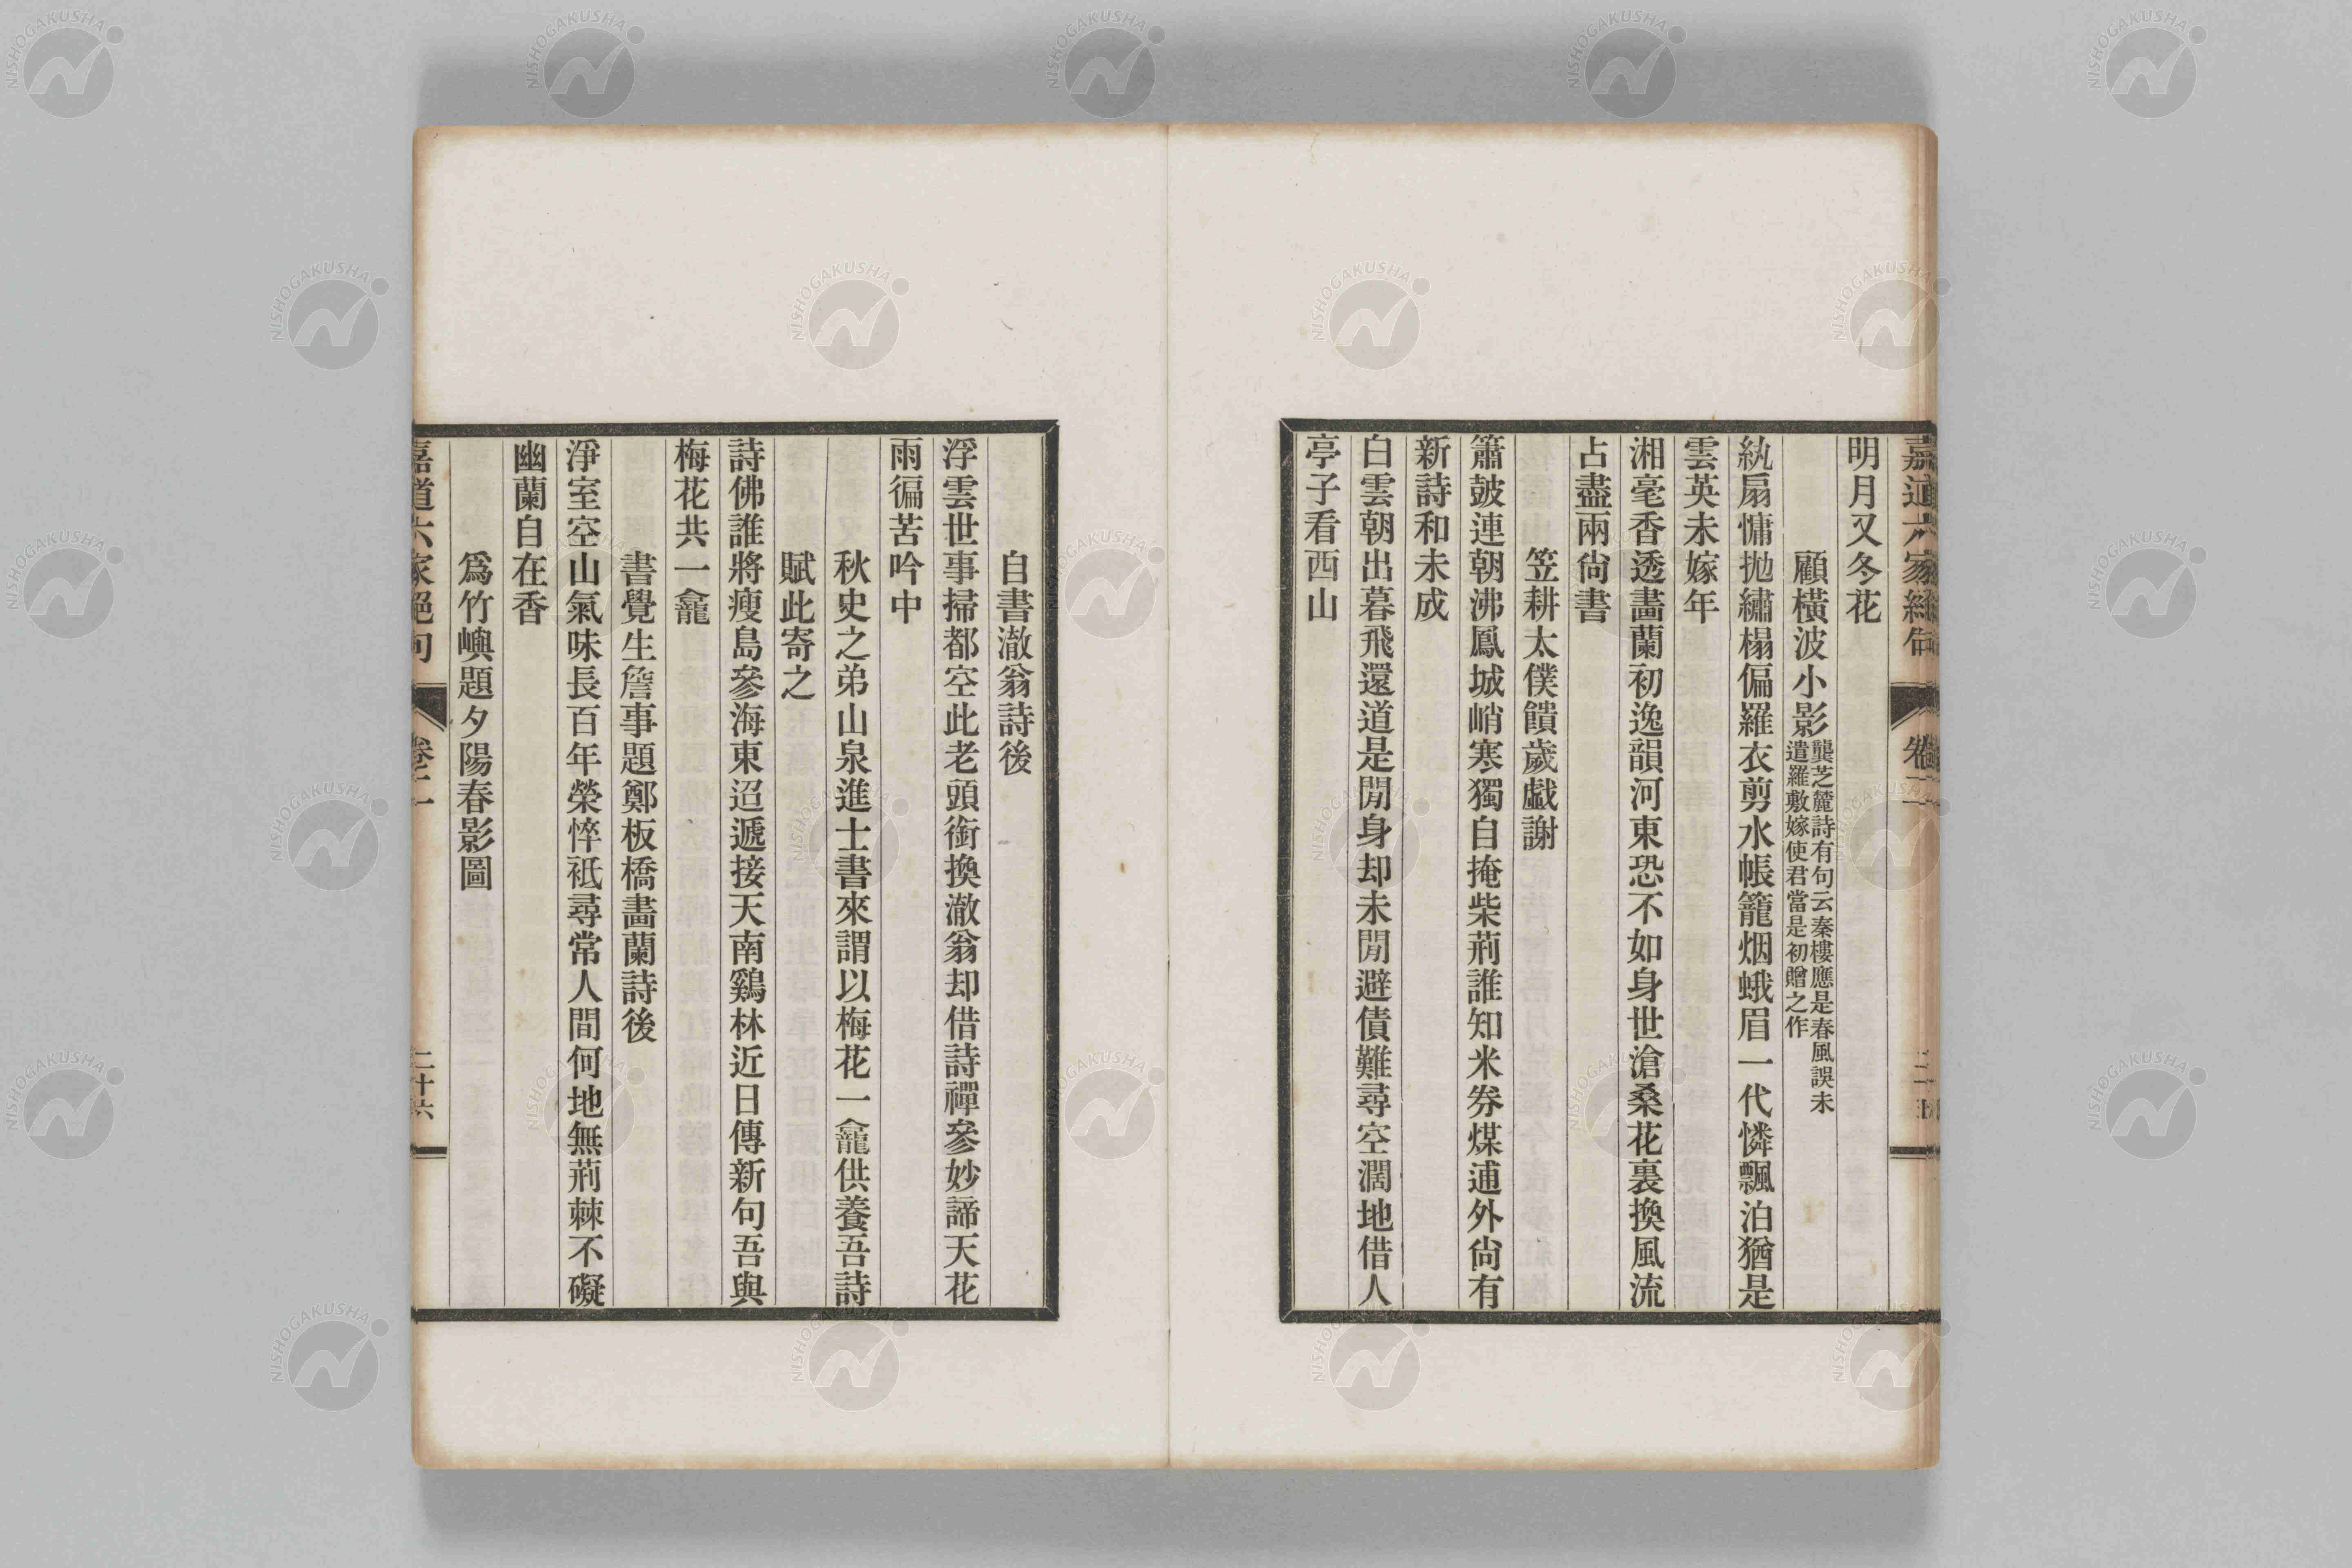 嘉道六家絕句
卷二
明月又冬花
顧橫波小影龔芝麓詩有句云秦樓應是春風誤未
遣羅敷嫁使君當是初贈之作
紈扇慵抛繡榻偏羅衣剪水帳籠烟蛾眉一代憐飄泊猶是
雲英未嫁年
湘毫香透畵蘭初逸韻河東恐不如身世滄桑花裏換風流
占盡兩尙書
笠耕太僕饋歲戲謝
簫皷連朝沸鳳城峭寒獨自掩柴荊誰知米券煤逋外尙有
新詩和未成
白雲朝出暮飛還道是閒身却未閒避債難尋空濶地借人
亭子看西山
自書澈翁詩後
浮雲世事掃都空此老頭銜換澈翁却借詩禪參妙諦天花
雨徧苦吟中
秋史之弟山泉進士書來謂以梅花一龕供養吾詩
賦此寄之
詩佛誰將瘦島參海東迢遞接天南鷄林近日傳新句吾與
梅花共一龕
書覺生詹事題鄭板橋畵蘭詩後
淨室空山氣味長百年榮悴祗尋常人間何地無荊棘不礙
幽蘭自在香
爲竹嶼題夕陽春影圖
嘉道六家絕句
卷二
二十六
NISHOGAKUSHA